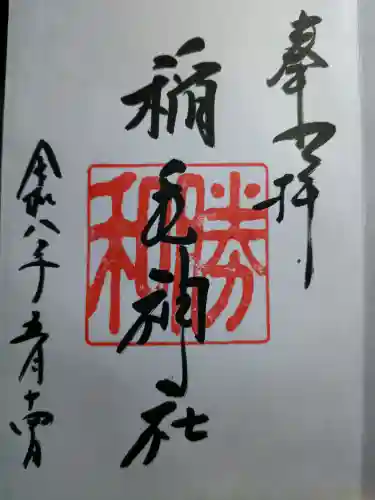 奉拝
稲毛神社
勝
和
令和八年五月十四日